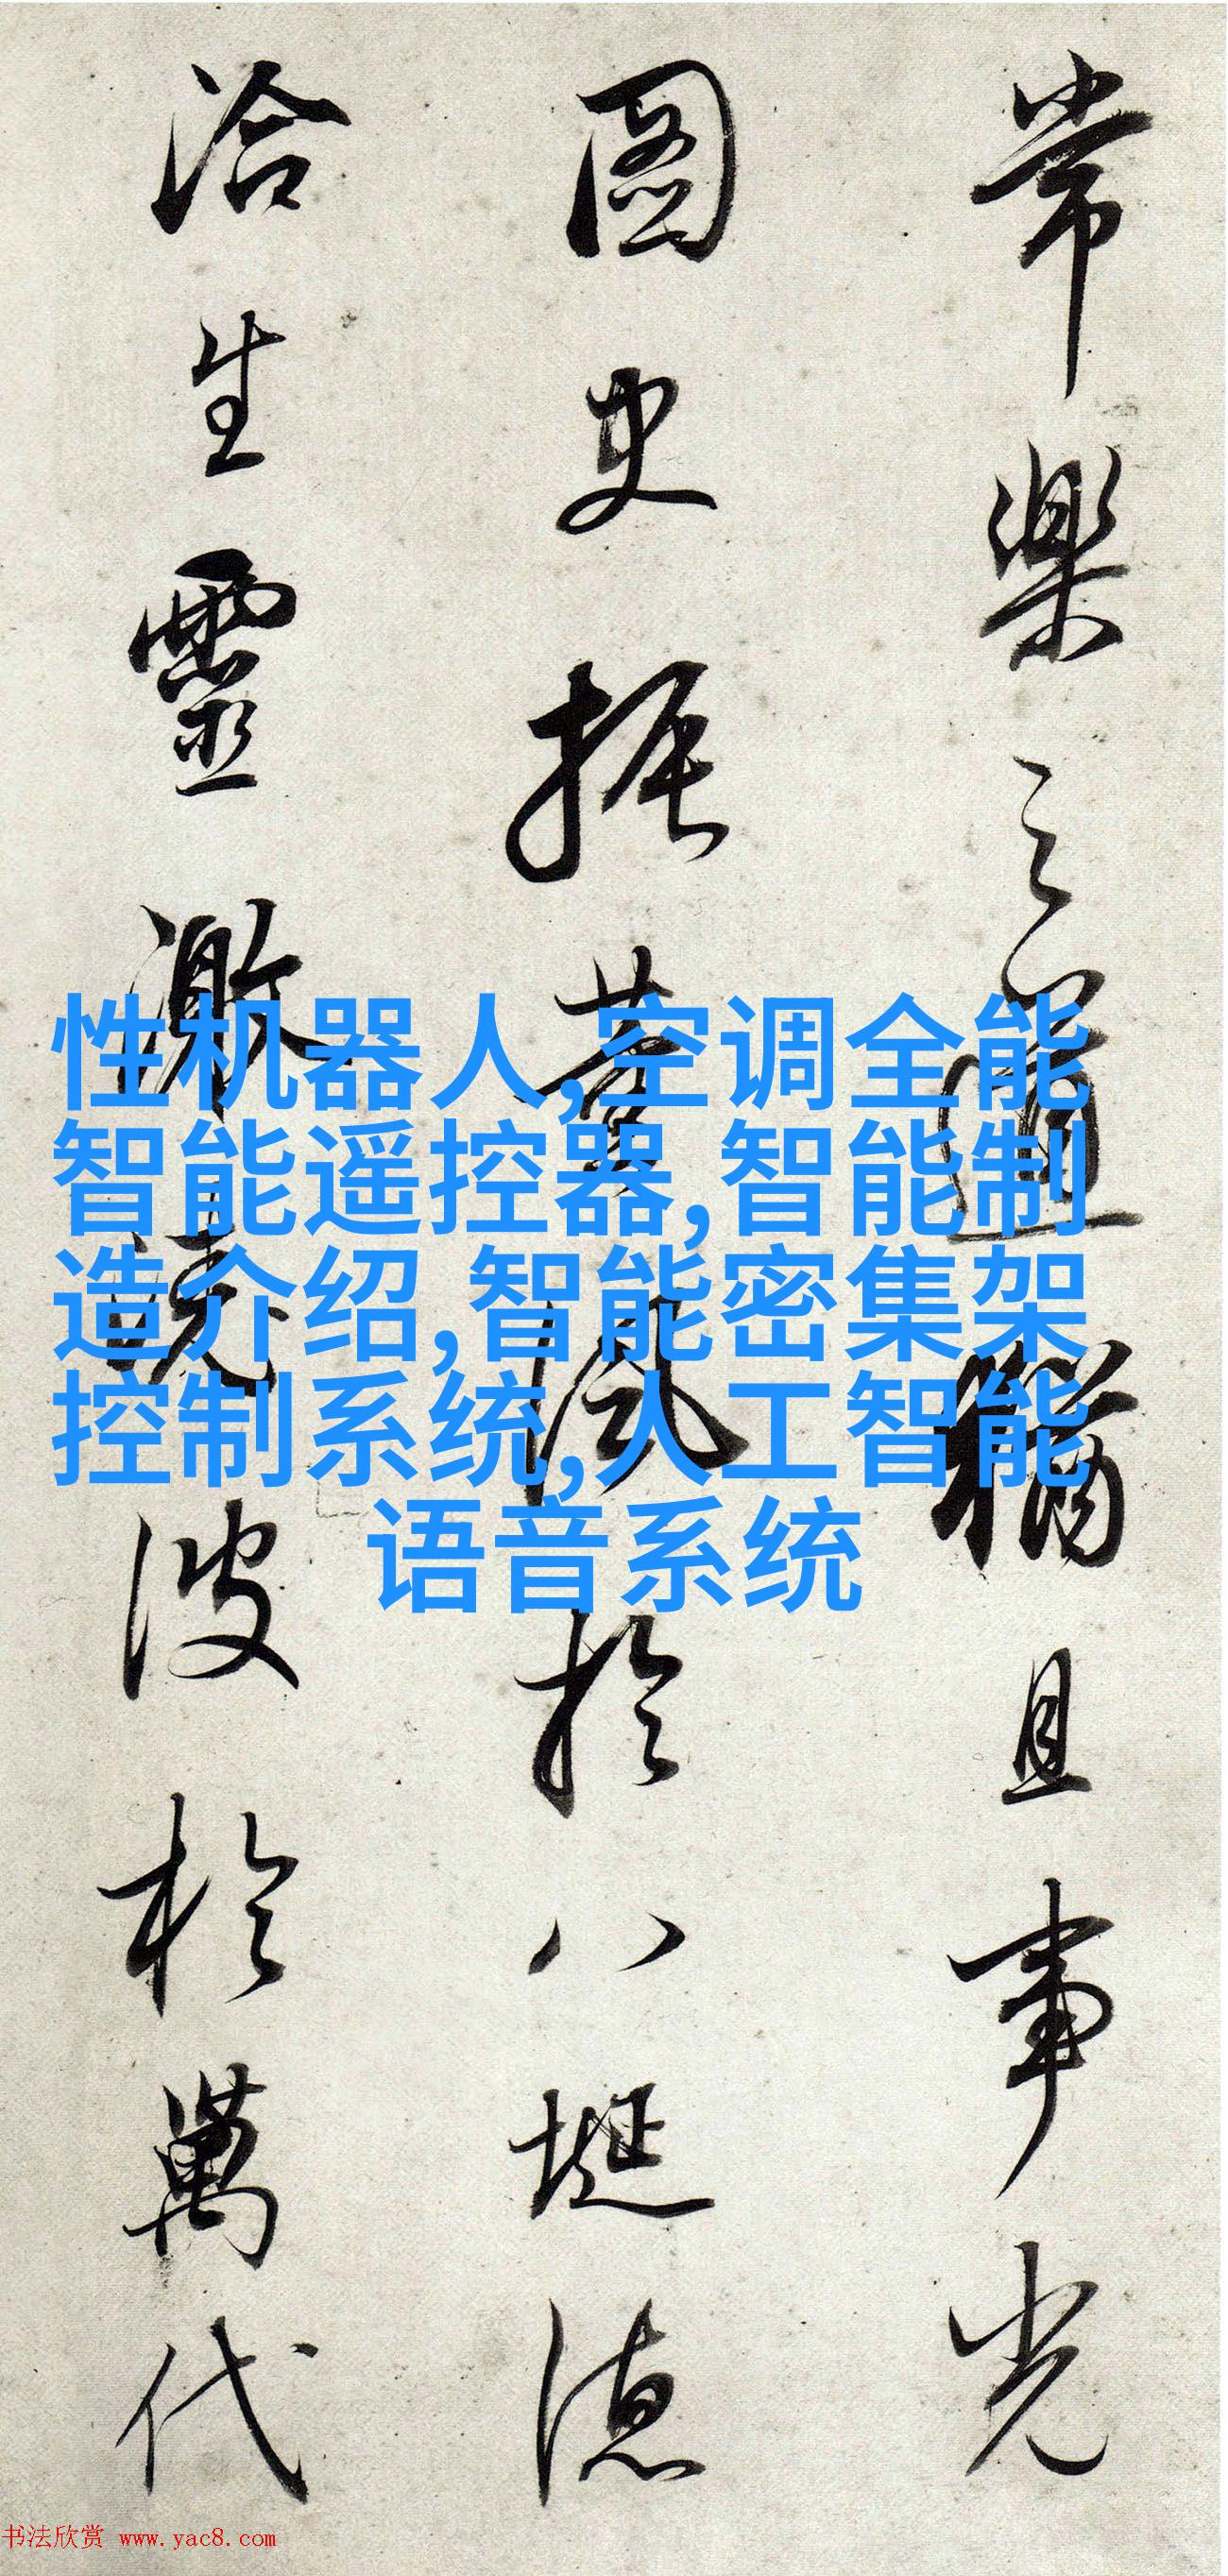 常樂之道猶且事光
圖史振菁風於八埏德
洽生靈激清波於萬代
性机器人,空调全能
智能遥控器,智能制
造介绍,智能密集架
控制系统,人工智能
语音系统
书法欣赏 www.yac8.com